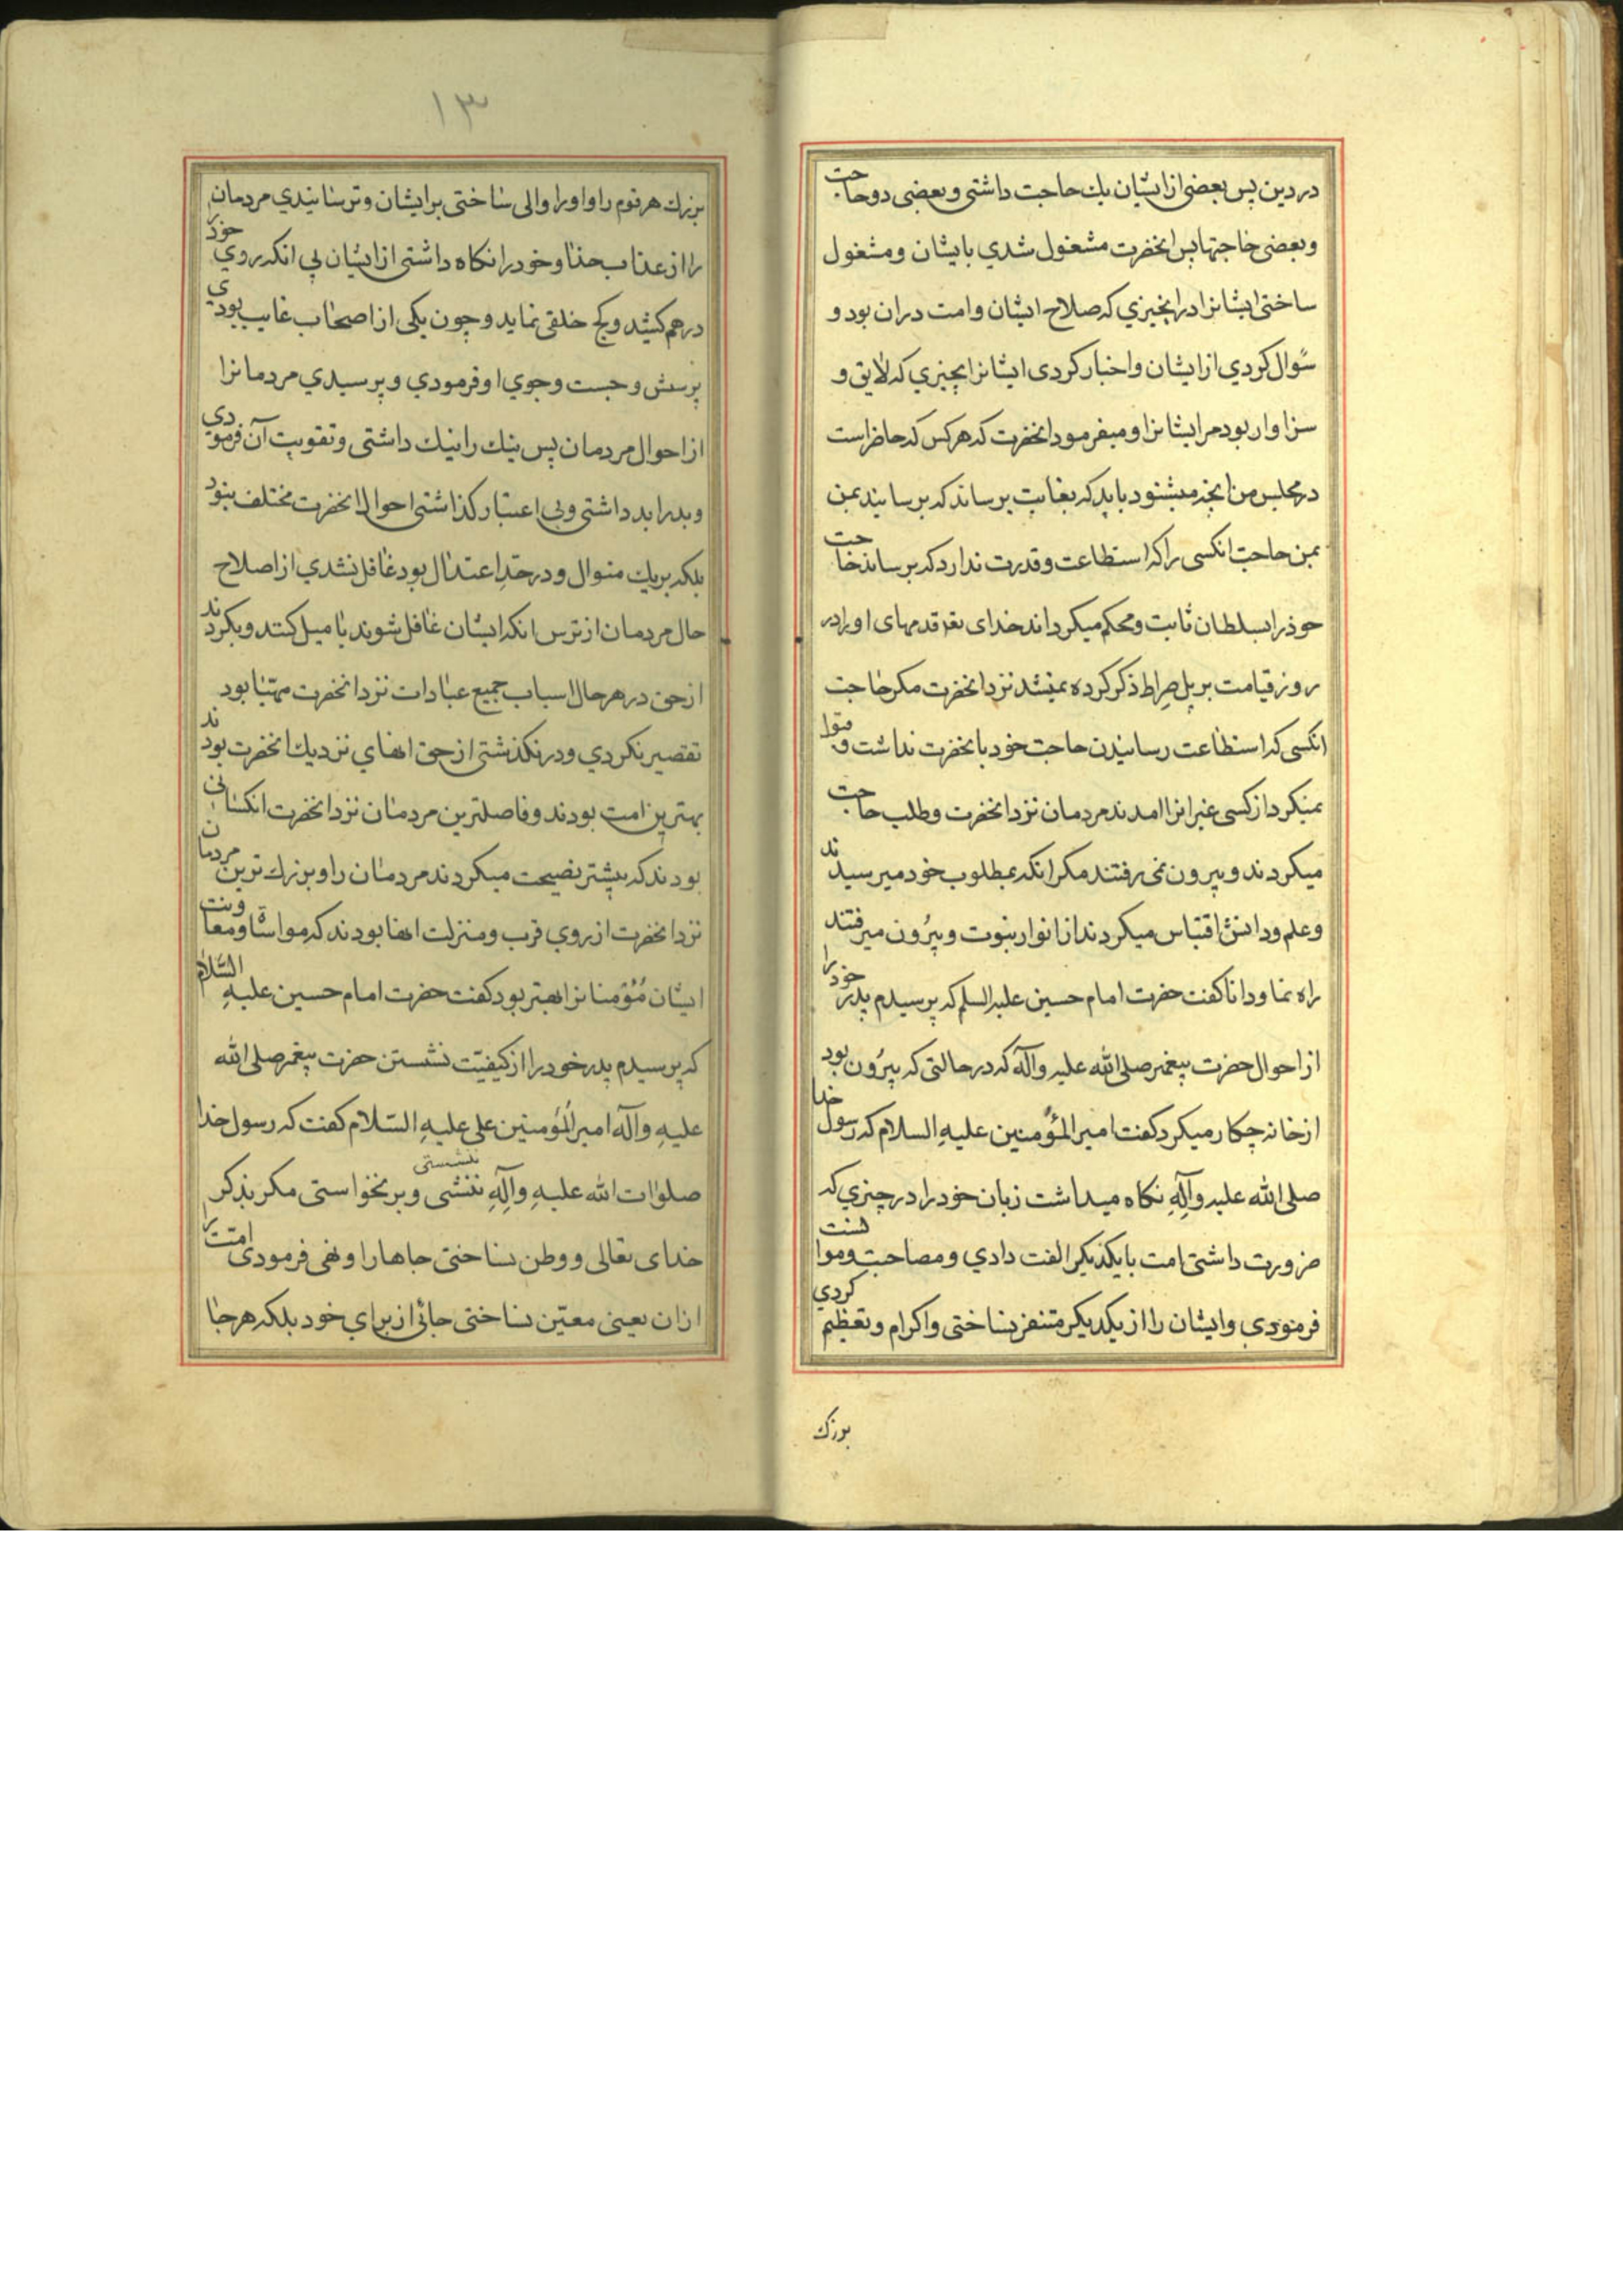 در دین پس بعضی از ایشان یك حاجت داشتی و بعضی دو حاجت
و بعضی حاجتها پس انحضرت مشغول شدي بایشان و مشغول
ساختی ایشانرا در انچیزي که صلاح ایشان و امت دران بود و
سؤال کردي از ایشان و اخبار کردی ایشانرا بچیزي که لایق و
سزاوار بود مر ایشانرا و میفرمود انحضرت که هر کس که حاضر است
در مجلس من انچه میشنود باید که بغایب برساند که برسانید بمن
بمن حاجت انکسی را که استطاعت و قدرت ندارد که برساند حاجت
خودرا بسلطان ثابت و محکم میکرداند خدای تع قدمهای اورا در
روز قیامت بر پل صراط ذکر کرده نمیشد نزد انحضرت مکر حاجت
انکسی که استطاعت رسانیدن حاجت خود بانحضرت نداشت و قبول
نمیکرد از کسی غیر انرا امدند مردمان نزد انحضرت و طلب حاجت
میکردند و بیرون نمی رفتند مکر انکه بمطلوب خود میرسیدند
و علم و دانش اقتباس میکردند از انوار نبوت و بیرون میرفتند
راه نما و دانا کفت حضرت امام حسین علیه السلم که پرسیدم پدر خودرا
از احوال حضرت پیغمبر صلی الله علیه وآله که در حالتی که بیرون بود
از خانه چکار میکرد کفت امیر المؤمنین علیه السلام که رسول خدا
صلی الله علیه وآلِهِ نکاه میداشت زبان خود را در چیزي که
ضرورت داشتی امت با یکدیکر الفت دادي و مصاحبت و موانست
فرمودي و ایشان را از یکدیکر متنفر نساختی و اکرام و تعظیم کردي
بزرك
١٣
بزرك هر قوم را و اورا والی ساختی بر ایشان و ترسانیدي مردمان
را از عذاب خدا و خودرا نکاه داشتی از ایشان بی انکه روي خودرا
درهم کشد و کج خلقی نماید و چون یکی از اصحاب غایب بودی
پرسش و جست و جوي او فرمودي و پرسیدي مردمانرا
از احوال مردمان پس نیك را نیك داشتی و تقویت آن فرمودي
و بد را بد داشتی و بی اعتبار کذاشتی احوال انحضرت مختلف نبود
بلکه بریك منوال و در حدِ اعتدال بود غافل نشدي از اصلاح
حال مردمان از ترس انکه ایشان غافل شوند یا میل کنند و بکردند
از حق در هر حال اسباب جمیع عبادات نزد انحضرت مهیا بود
تقصیر نکردي و در نکذشتی از حق انهاي نزدیك انحضرت بودند
بهترین امت بودند و فاضلترین مردمان نزد انحضرت انکسانی
بودند که بیشتر نصیحت میکردند مردمان را و بزرك ترین مردمان
نزد انحضرت از روي قرب و منزلت انها بودند که مواساة و معاونت
ایشان مُؤمنانرا بهتر بود کفت حضرت امام حسین علیهِ السّلام
که پرسیدم پدر خود را از کیفیّت نشستن حضرت پیغمبر صلی الله
علیهِ وآله امیر المُؤمنین علی علیهِ السّلام کفت که رسول خدا
صلوات الله علیهِ وآلِهِ ننشستی و بر نخواستی مکر بذکر
خدای تعالی و وطن نساختی جاها را و نهی فرمودی امت را
ازان یعنی معیّن نساختی جائی از براي خود بلکه هر جا